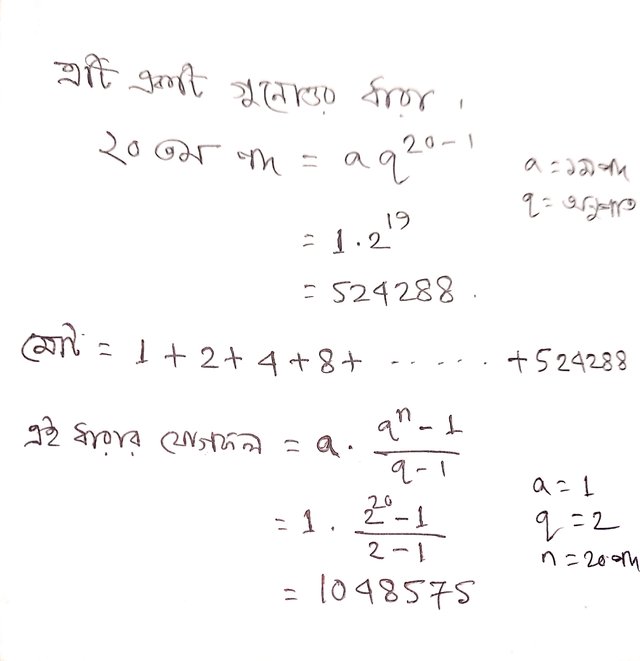 এটি একটি গুনোত্তর ধারা ।
২০ তম পদ = aq^{20-1}
a = ১ম পদ
q = অনুপাত
= 1 . 2^{19}
= 524288 .
মোট = 1 + 2 + 4 + 8 + ...... + 524288
এই ধারার যোগফল = a . \frac{q^n - 1}{q - 1}
a = 1
q = 2
n = 20 পদ
= 1 . \frac{2^{20} - 1}{2 - 1}
= 1048575